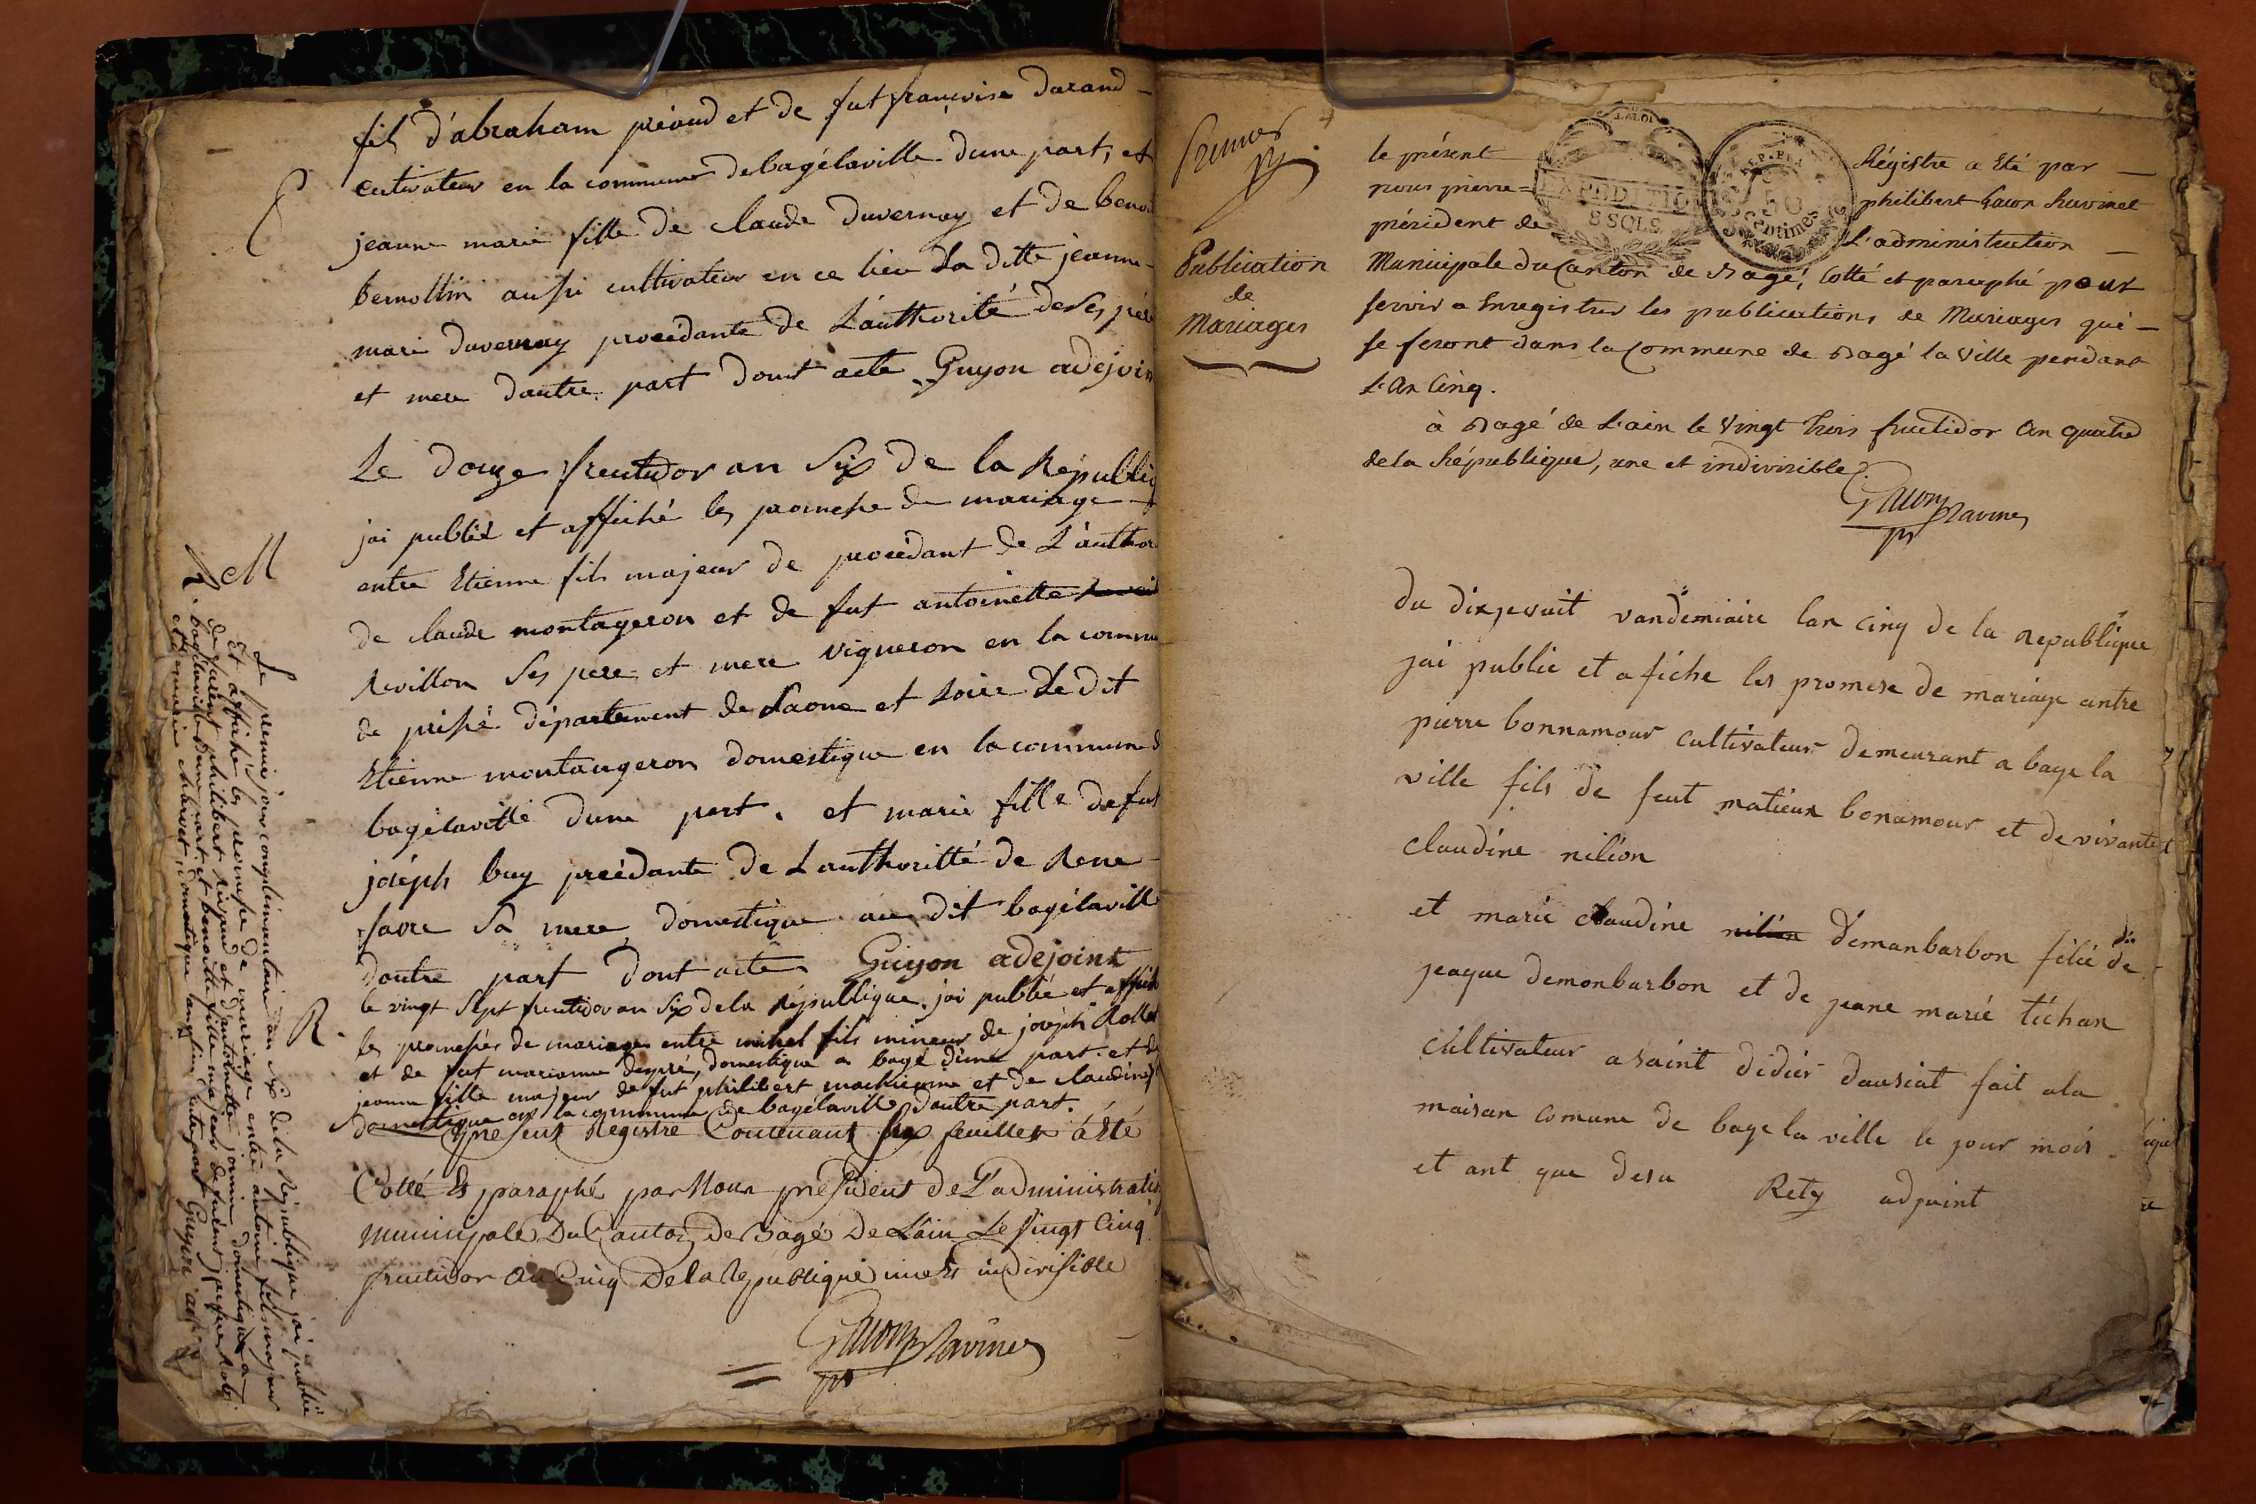 fils d'abraham préaud et de fut françoise durand
cultivateur en la commune de bagélaville dune part, et
C
jeanne marie fille de claude duvernay et de benoi
bernollin aussi cultivateur en ce lieu La ditte jeanne
marie duvernay procédante de L'authorité de Ses père
et mere dautre part dont acte Guyon adejoin
Le douze fructidor an Six de la Républiq
jai publié et affiché les promesse de mariage
entre Etienne fils majeur de procédant de L'author
M
de claude montageron et de fut antoinette
Revillon Ses pere et mere vigneron en la commu
de prissé département de Saone et Loire Le dit
Etienne montangeron domestique en la commune d
bagélaville dune part. et marie fille de fut
joséph buy procédante de Lauthorité de Rene
favre Sa mere domestique au dit bagélaville
dautre part dont acte Guyon adejoint
R.
le vingt Sept fructidor an Six de la République. jai publié et affiché
les promesses de mariage entre michel fils mineur de joséph Rollet
et de fut marianne dupré, domestique a bagé dune part. et de
jeanne fille majeur de fut philibert et de claudine
domestique en la commune de bagélaville dautre part.
présent Registre Contenant Six feuilles à Eté
Cotté Et paraphé par Nous président de L'administratio
Municipale Du Canton de Bagé De L'ain Le Vingt Cinq
fructidor An Cinq De la République une Et indivisible
Gacon Navines
R.
Le premier jour complémentaire an six de la République jai publié
Et affiché les promesse de mariage entre antoine fils majeur
de furent philibert et d'antoinette domestique a
bagélaville Dune part. et benoitte fille majeur de furent jacque
et de marie domestique dautre part Guyon adj
Premier
Publication
de
Mariages
LA LOI
EXPEDITION
8 SOLS
REP. FRA
50
Centimes
le présent Régistre a Eté par
nous pierre= philibert Gacon Navines
président de L'administration
Municipale du Canton de Bagé, Cotté et paraphé pour
servir a Enregistrer les publications de Mariages qui
se feront dans la Commune de Bagé la Ville pendant
L'An Cinq.
à Bagé de L'ain le Vingt trois fructidor An quatre
de la République, une et indivisible.
Gacon Navines
du dixjesuit vandemiaire lan cinq de la Republique
jai publie et afiche les promese de mariage antre
pierre bonnamour cultivateur demeurant a bage la
ville fils de feut matieux bonamour et de vivante
claudine nilion
et marie claudine nilion demanbarbon filie de
jeaque demonbarbon et de jeane marie tichan
cultivateur a saint didier dausiat fait a la
maison comune de bage la ville le jour mois
et ant que desu Rety adjoint